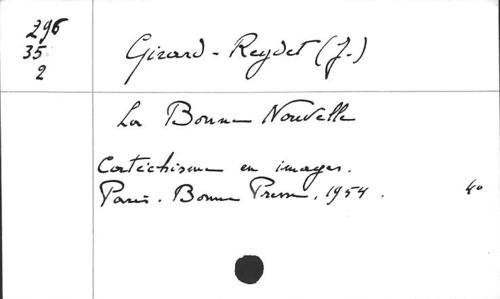 296
35
2
Girard-Reydet (J.)
La Bonne Nouvelle
Catéchisme en images.
Paris. Bonne Presse, 1954. 4°